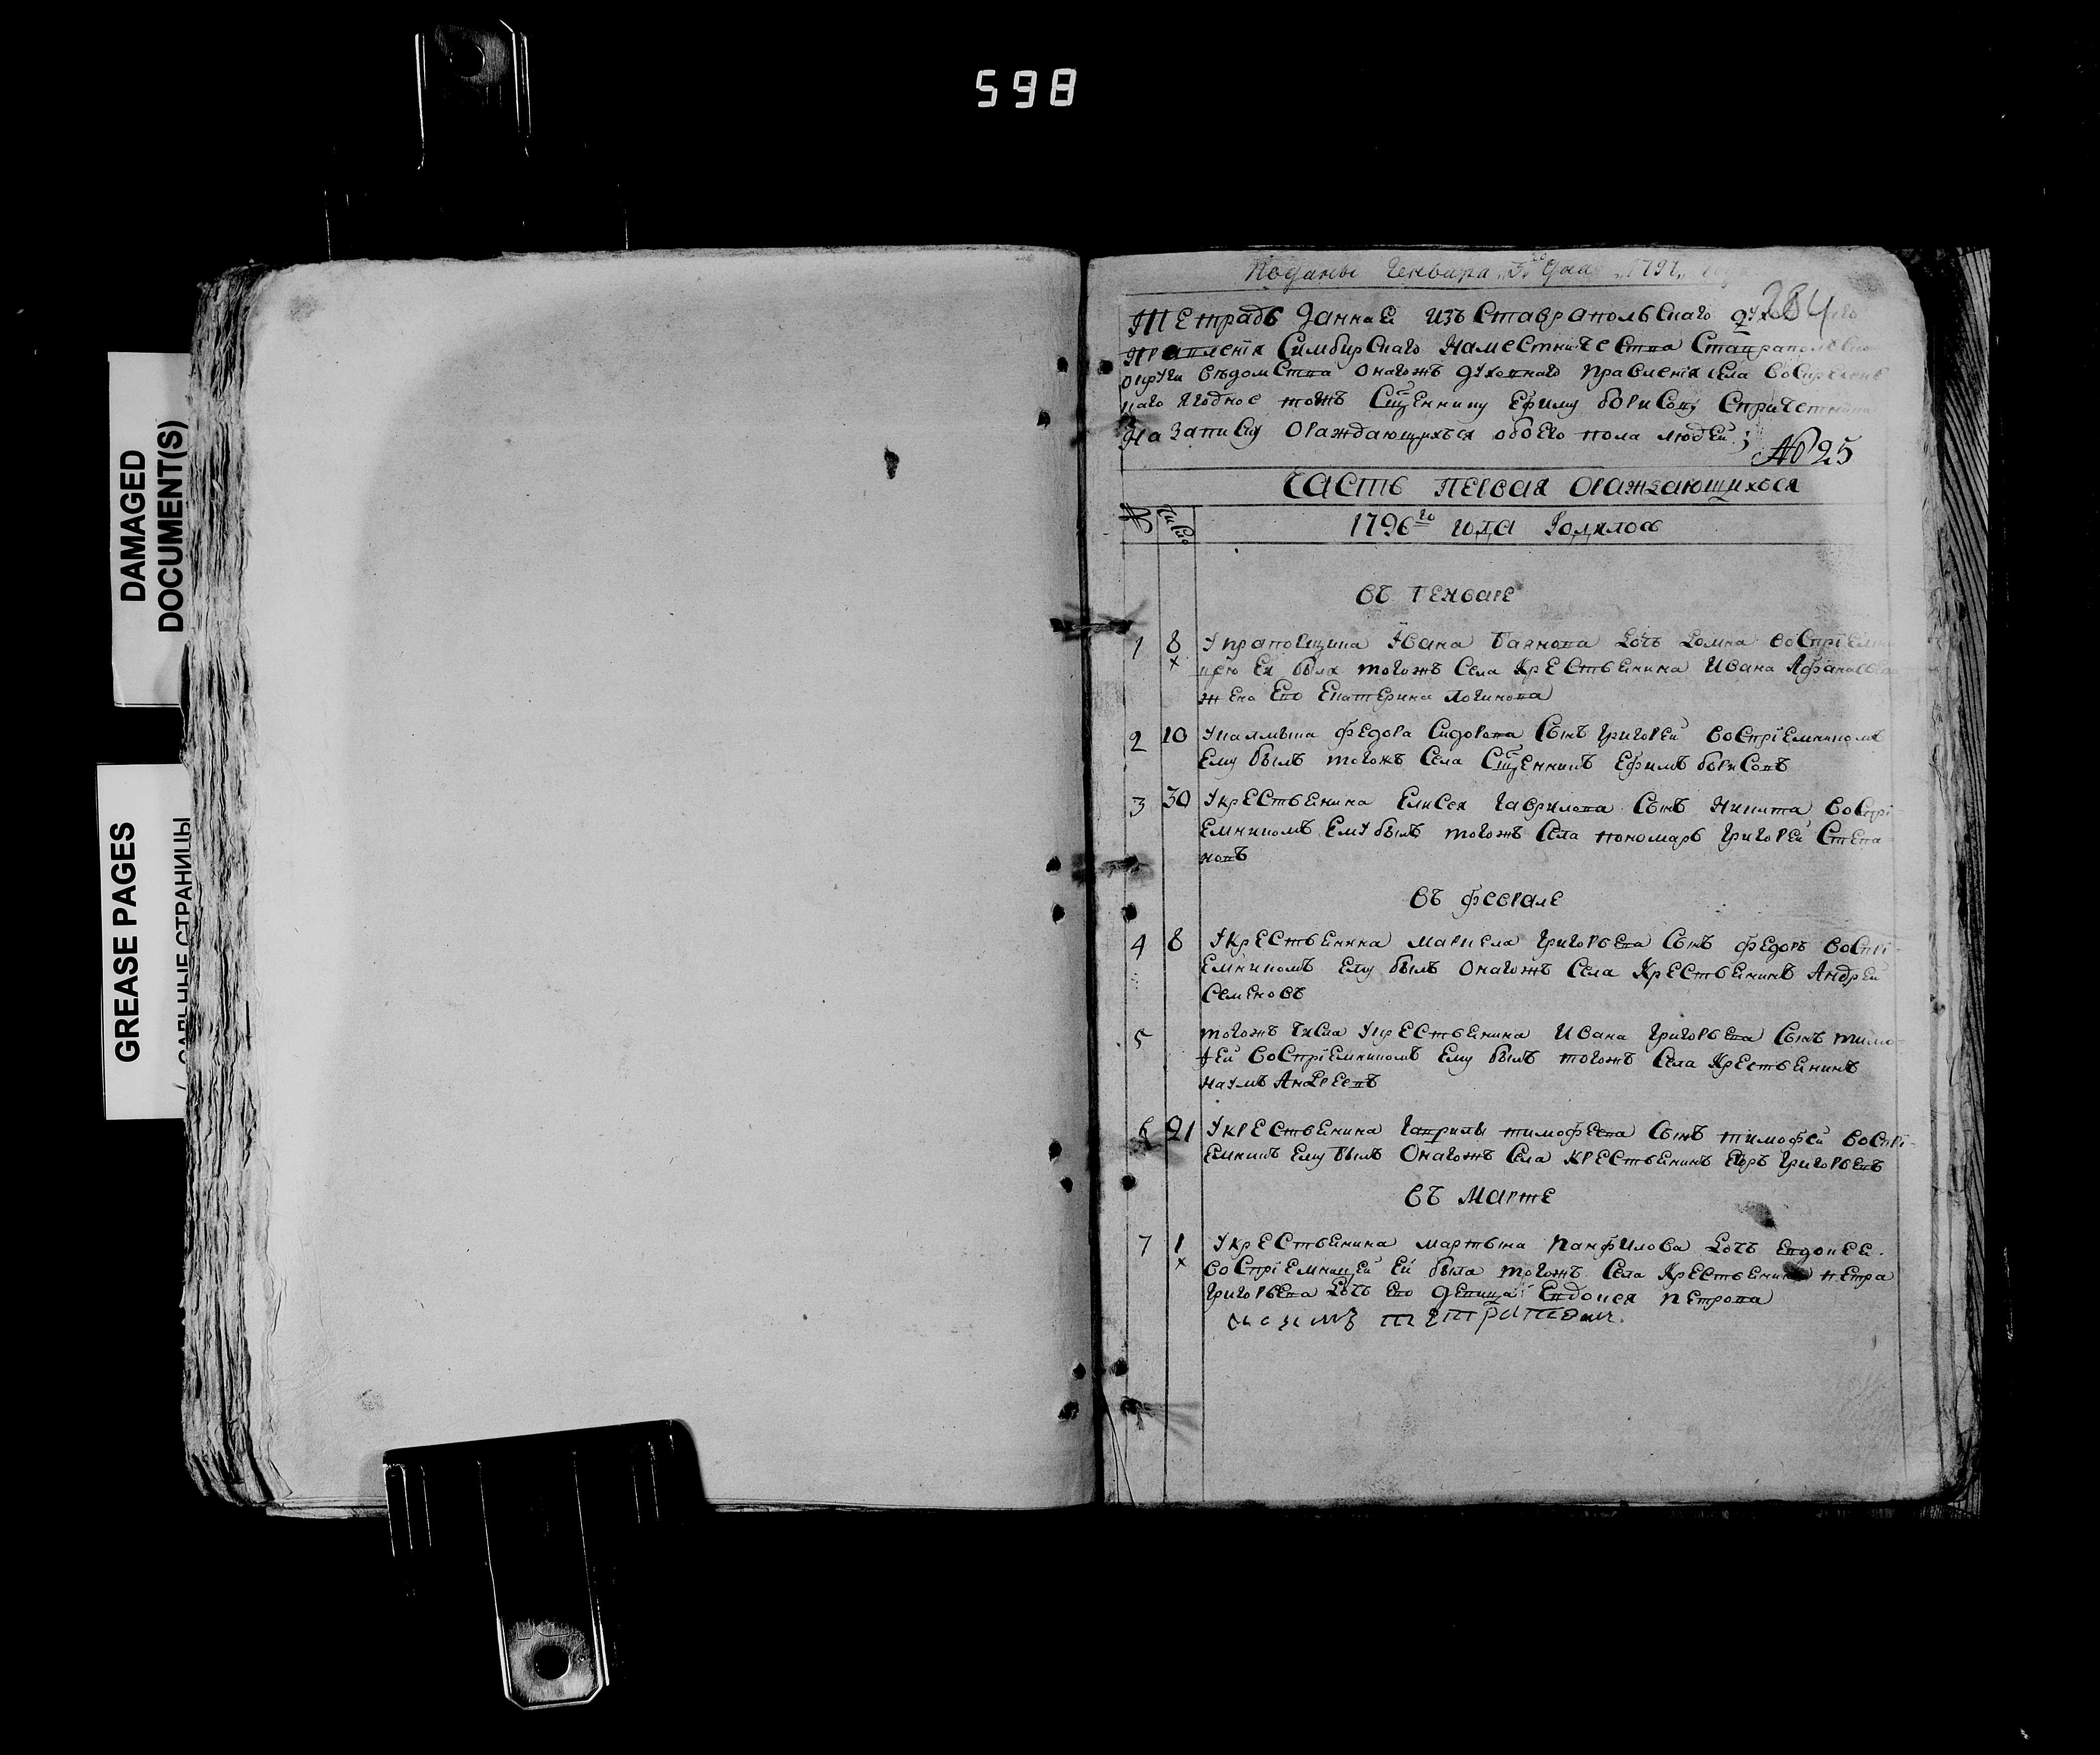 598
DAMAGED
DOCUMENT(S)
GREASE PAGES
САЛЬНЫЕ СТРАНИЦЫ
Поданы Генваря 1797
284
Тетрадь данная изъ Ставропольскаго
правленія Симбирскаго наместничества
округи ведомства онагожъ духовнаго правленія села
ягодное тожъ Сщ҃еннику Ефиму Борисову
на записку ораждающихъся обоего пола людей
№ 25
Часть первая ораждающихься
№ число
1796го года родилось
въ Генваре
1 8 У Ивана дочь Домна
ею ея была тогожъ села крестьянина Ивана
жена ево Екатерина Логинова
2 10 Федора Сидорова сынъ Григорей воспріемникомъ
ему былъ тогожъ села Сщ҃енникъ Ефимъ Борисовъ
3 30 У крестьянина Елисея Гаврилова сынъ Никита воспрі
емникомъ ему былъ тогожъ села пономарь Григорей Степа
новъ
въ феврале
4 8 У крестьянина Григорьева сынъ Федоръ воспрі
емникомъ ему былъ онагожъ села крестьянинъ Андрей
Семеновъ
5 тогожъ числа у крестьянина Ивана Григорьева сынъ тимо
ѳей воспріемникомъ ему былъ тогожъ села крестьянинъ
наумъ Андреевъ
6 21 У крестьянина Гаврилы тимофеева сынъ тимофей воспрі
емникъ ему былъ онагожъ села крестьянинъ Егоръ Григорьевъ
въ Марте
7 1 У крестьянина мартына Панфилова дочь
воспріемницей ей была тогожъ села крестьянина петра
Григорьева дочь ево девица Евдокея петрова